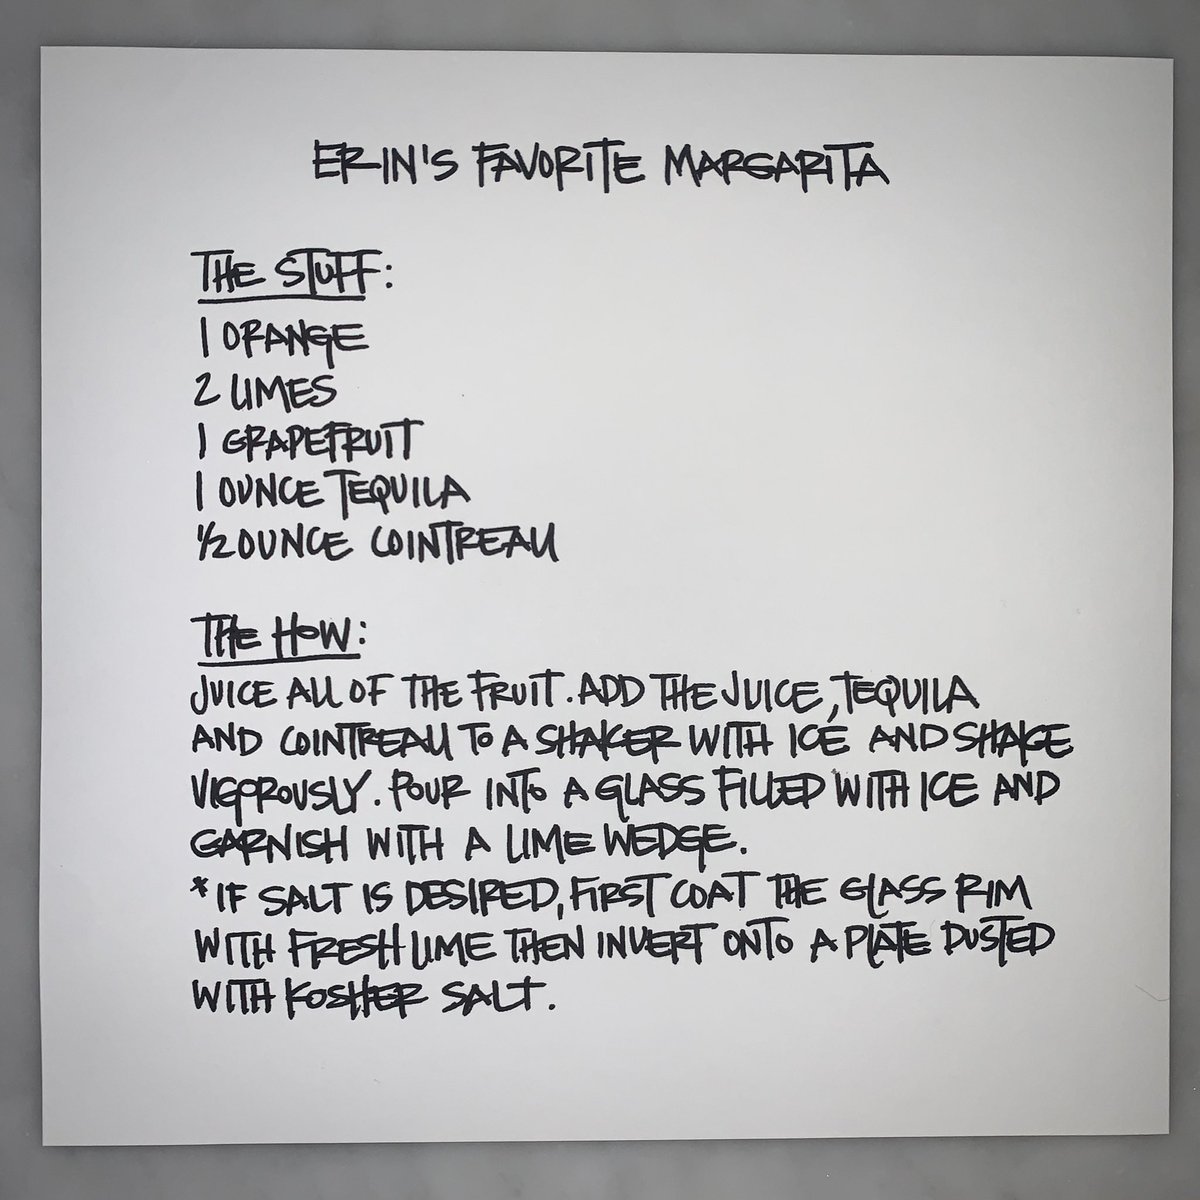 ERIN'S FAVORITE MARGARITA
THE STUFF:
1 ORANGE
2 LIMES
1 GRAPEFRUIT
1 OUNCE TEQUILA
½ OUNCE COINTREAU
THE HOW:
JUICE ALL OF THE FRUIT. ADD THE JUICE, TEQUILA
AND COINTREAU TO A SHAKER WITH ICE AND SHAKE
VIGOROUSLY. POUR INTO A GLASS FILLED WITH ICE AND
GARNISH WITH A LIME WEDGE.
*IF SALT IS DESIRED, FIRST COAT THE GLASS RIM
WITH FRESH LIME THEN INVERT ONTO A PLATE DUSTED
WITH KOSHER SALT.